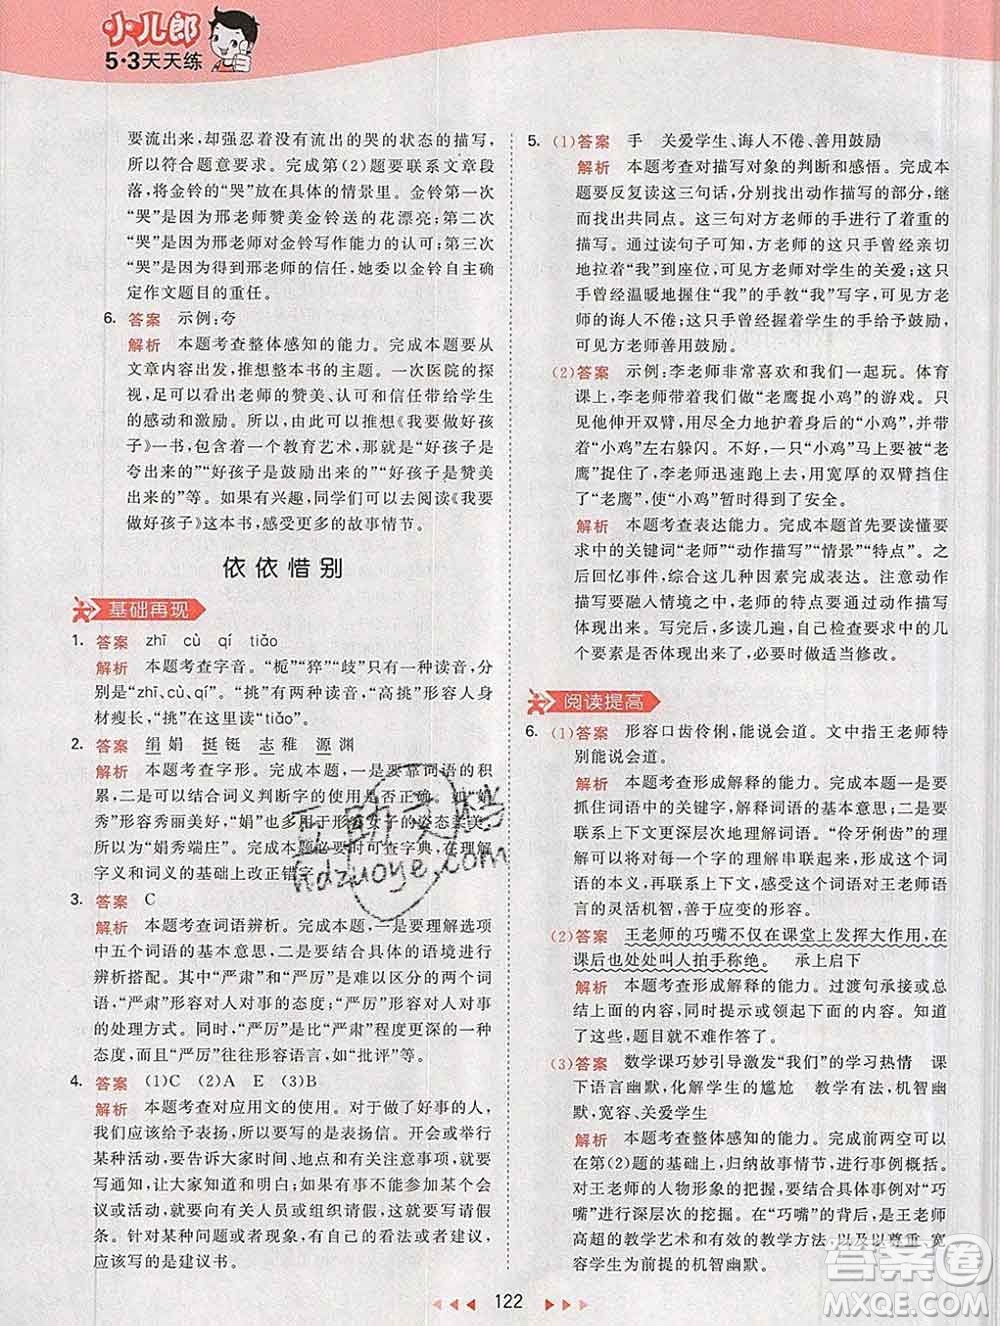 小儿郎
5·3天天练
要流出来,却强忍着没有流出的哭的状态的描写,
所以符合题意要求。完成第(2)题要联系文章段
落,将金铃的“哭”放在具体的情景里。金铃第一次
“哭”是因为邢老师赞美金铃送的花漂亮;第二次
“哭”是因为邢老师对金铃写作能力的认可;第三次
“哭”是因为得到邢老师的信任,她委以金铃自主确
定作文题目的重任。
6. 答案 示例:夸
解析 本题考查整体感知的能力。完成本题要从
文章内容出发,推想整本书的主题。一次医院的探
视,足可以看出老师的赞美、认可和信任带给学生
的感动和激励。所以,由此可以推想《我要做好孩
子》一书,包含着一个教育艺术,就是“好孩子是
夸出来的”“好孩子是鼓励出来的”“好孩子是赞美
出来的”等。如果有兴趣,同学们可以去阅读《我要
做好孩子》这本书,感受更多的故事情节。
依依惜别
基础再现
1. 答案 zhī cù qí tiǎo
解析 本题考查字音。“栀”“猝”“歧”只有一种读音,分
别是“zhī、cù、qí”。“挑”有两种读音,“高挑”形容人身
材瘦长,“挑”在这里读“tiǎo”。
2. 答案 绢 娟 挺 铤 志 稚 源 渊
解析 本题考查字形。完成本题,一是要靠词语的积
累,二是可以结合词义判断字的使用是否正确。如“娟
秀”形容秀丽美好,“娟”多用于形容女子的姿态柔美,
所以为“娟秀端庄”。完成本题必要时可查字典,在理解
字义和词义的基础上改正错字。
3. 答案 C
解析 本题考查词语辨析。完成本题,一要理解选项
中五个词语的基本意思,二是要结合具体的语境进行
辨析搭配。其中“严肃”和“严厉”是难以区分的两个词
语,“严肃”形容对人对事的态度;“严厉”形容对人对事
的处理方式。同时,“严厉”是比“严肃”程度更深的一种
态度,而且“严厉”往往形容语言,如“批评”等。
4. 答案 (1)C (2)A E (3)B
解析 本题考查对应用文的使用。对于做了好事的人,
我们应该给予表扬,所以要写的是表扬信。开会或举行
某种活动,要告诉大家时间、地点和有关注意事项,应该
写通知,让大家知道和明白;如果因为某种原因不参加某个
会议或活动,就要向有关人员或组织请假,这就要写请假
条。针对某种问题或者现象,有自己的看法或者建议,
应该写的是建议书。
5. (1)答案 手 关爱学生、诲人不倦、善用鼓励
解析 本题考查对描写对象的判断和感悟。完成本
题要反复读这三句话,分别找出动作描写的部分,继
而找出共同点。这三句对方老师的手进行了着重的
描写。通过读句子可知,方老师的这只手曾经亲切
地拉着“我”到座位,可见方老师对学生的关爱;这只
手曾经温暖地握住“我”的手教“我”写字,可见方老
师的诲人不倦;这只手曾经善用学生的手给予鼓励,
可见方老师善用鼓励。
(2)答案 示例:李老师非常喜欢和我们一起玩。体育
课上,李老师和我们一起做“老鹰捉小鸡”的游戏。只
见他伸开双臂,尽全力地护着身后的“小鸡”,带着
“小鸡”左右躲闪。不好,一只“小鸡”体力不支,要被“老
鹰”捉住了,李老师迅速跑上前,用宽厚的双臂挡住
了“老鹰”,使“小鸡”暂时得到了安全。
解析 本题考查表达能力。完成本题首先要读懂要
求中的关键词“老师”“动作描写”“情景”“特点”。然后
回忆事件,综合这些因素完成表达。注意动作
描写要融入情境之中,老师的特点要通过动作描写
体现出来。写完后,多读几遍,自己检查要求中的几
个要素是否体现出来了,必要时做适当修改。
阅读提高
6. (1)答案 形容口齿伶俐,能说会道。文中指王老师特
别能说会道。
解析 本题考查形成解释的能力。完成本题,一是要
抓住词语中的关键字,解释词语的基本意思;二是要
联系上下文更深层次地理解词语。“伶牙俐齿”的理解
可以从每个字的理解串联起来,完成这个词
语的本义,再联系全文内容,体会出王老师语言
的灵活机智,善于应变的形容。
(2)答案 王老师的巧嘴不仅在课堂上发挥大作用,在
课后也处处叫人拍手称绝。 承上启下
解析 本题考查形成解释的能力。过渡句承接或总
结上面的内容,同时提示或引领下面的内容。知道
了这些,题目就不难作答了。
(3)答案 数学课巧妙引导激发“我们”的学习热情 课
下语言幽默,化解学生的尴尬 教学有法,机智幽
默,宽容、关爱学生
解析 本题考查整体感知的能力。完成前两空可以
在第(2)题的基础上,归纳故事情节,进行概括。
对王老师的人物形象的把握,要透过现象,对“巧
嘴”进行深层次的挖掘。“巧嘴”的背后,是王老师高
超的教学艺术和有效的教学方法,以及以尊重、宽
容为前提的机智幽默。
互动作业
hdzuoye.com
122
答案圈
MXQE.COM